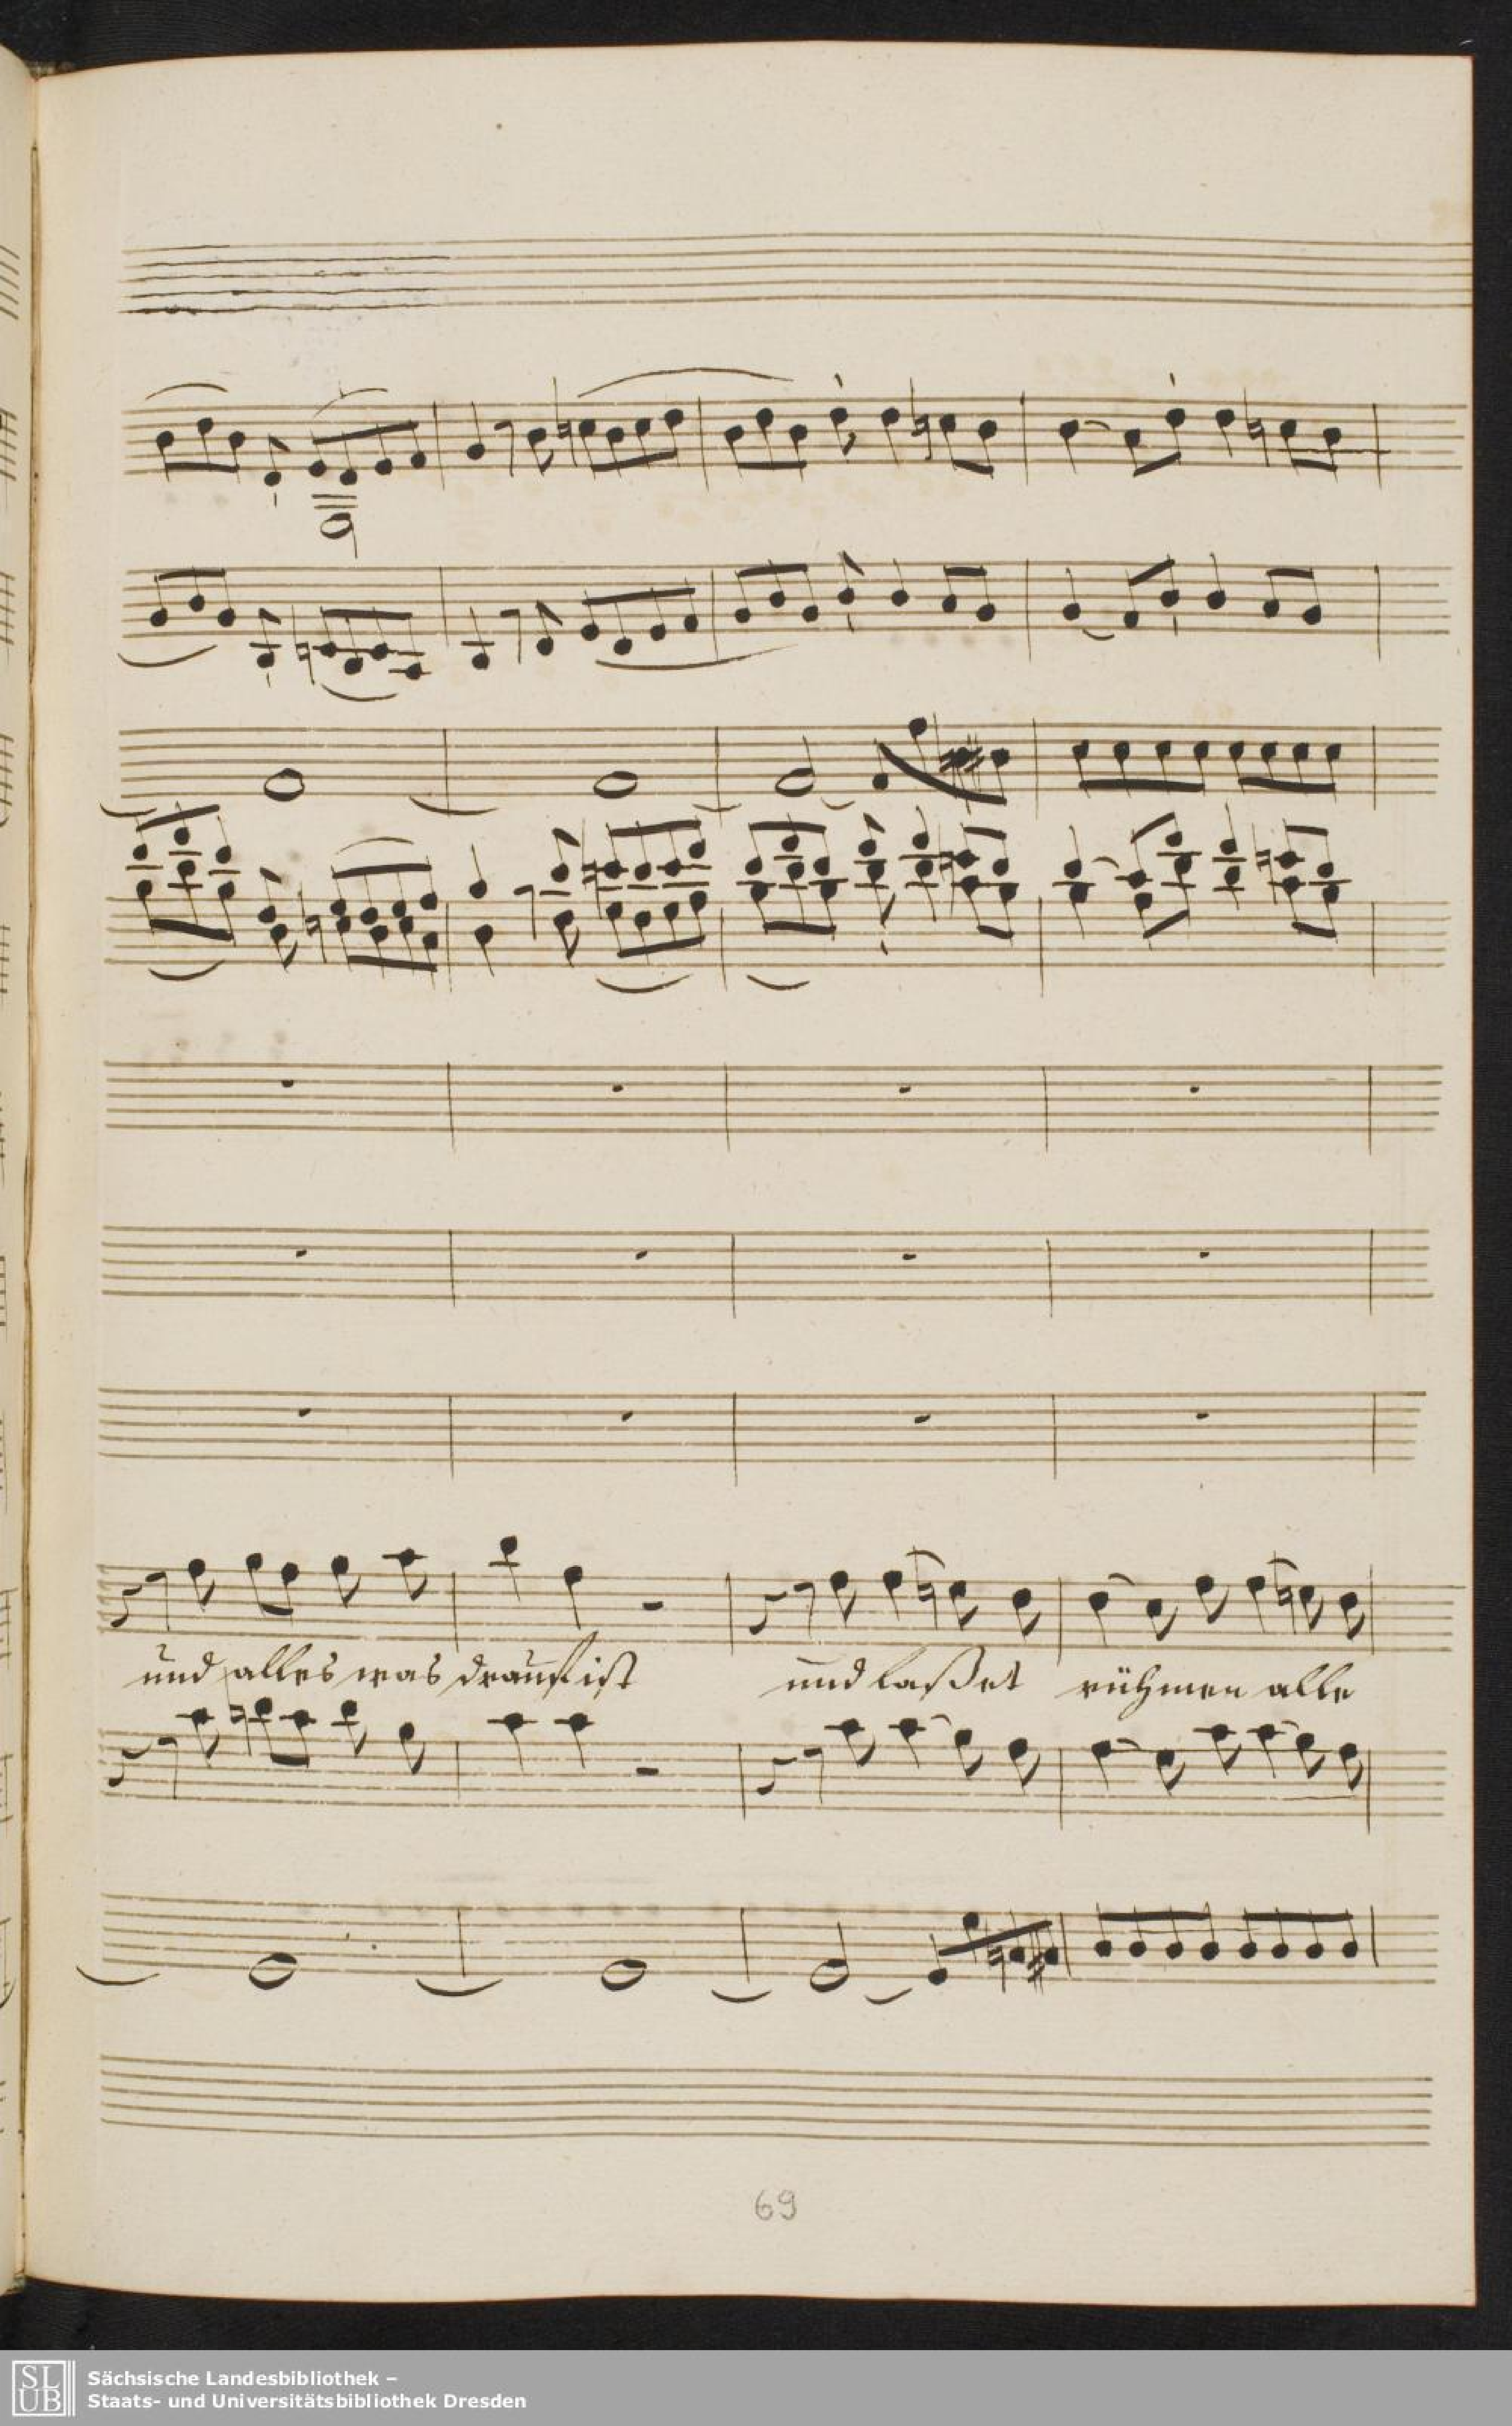 und alles was drauf ist und laßet rühmen alle
69
SLUB
Sächsische Landesbibliothek –
Staats- und Universitätsbibliothek Dresden